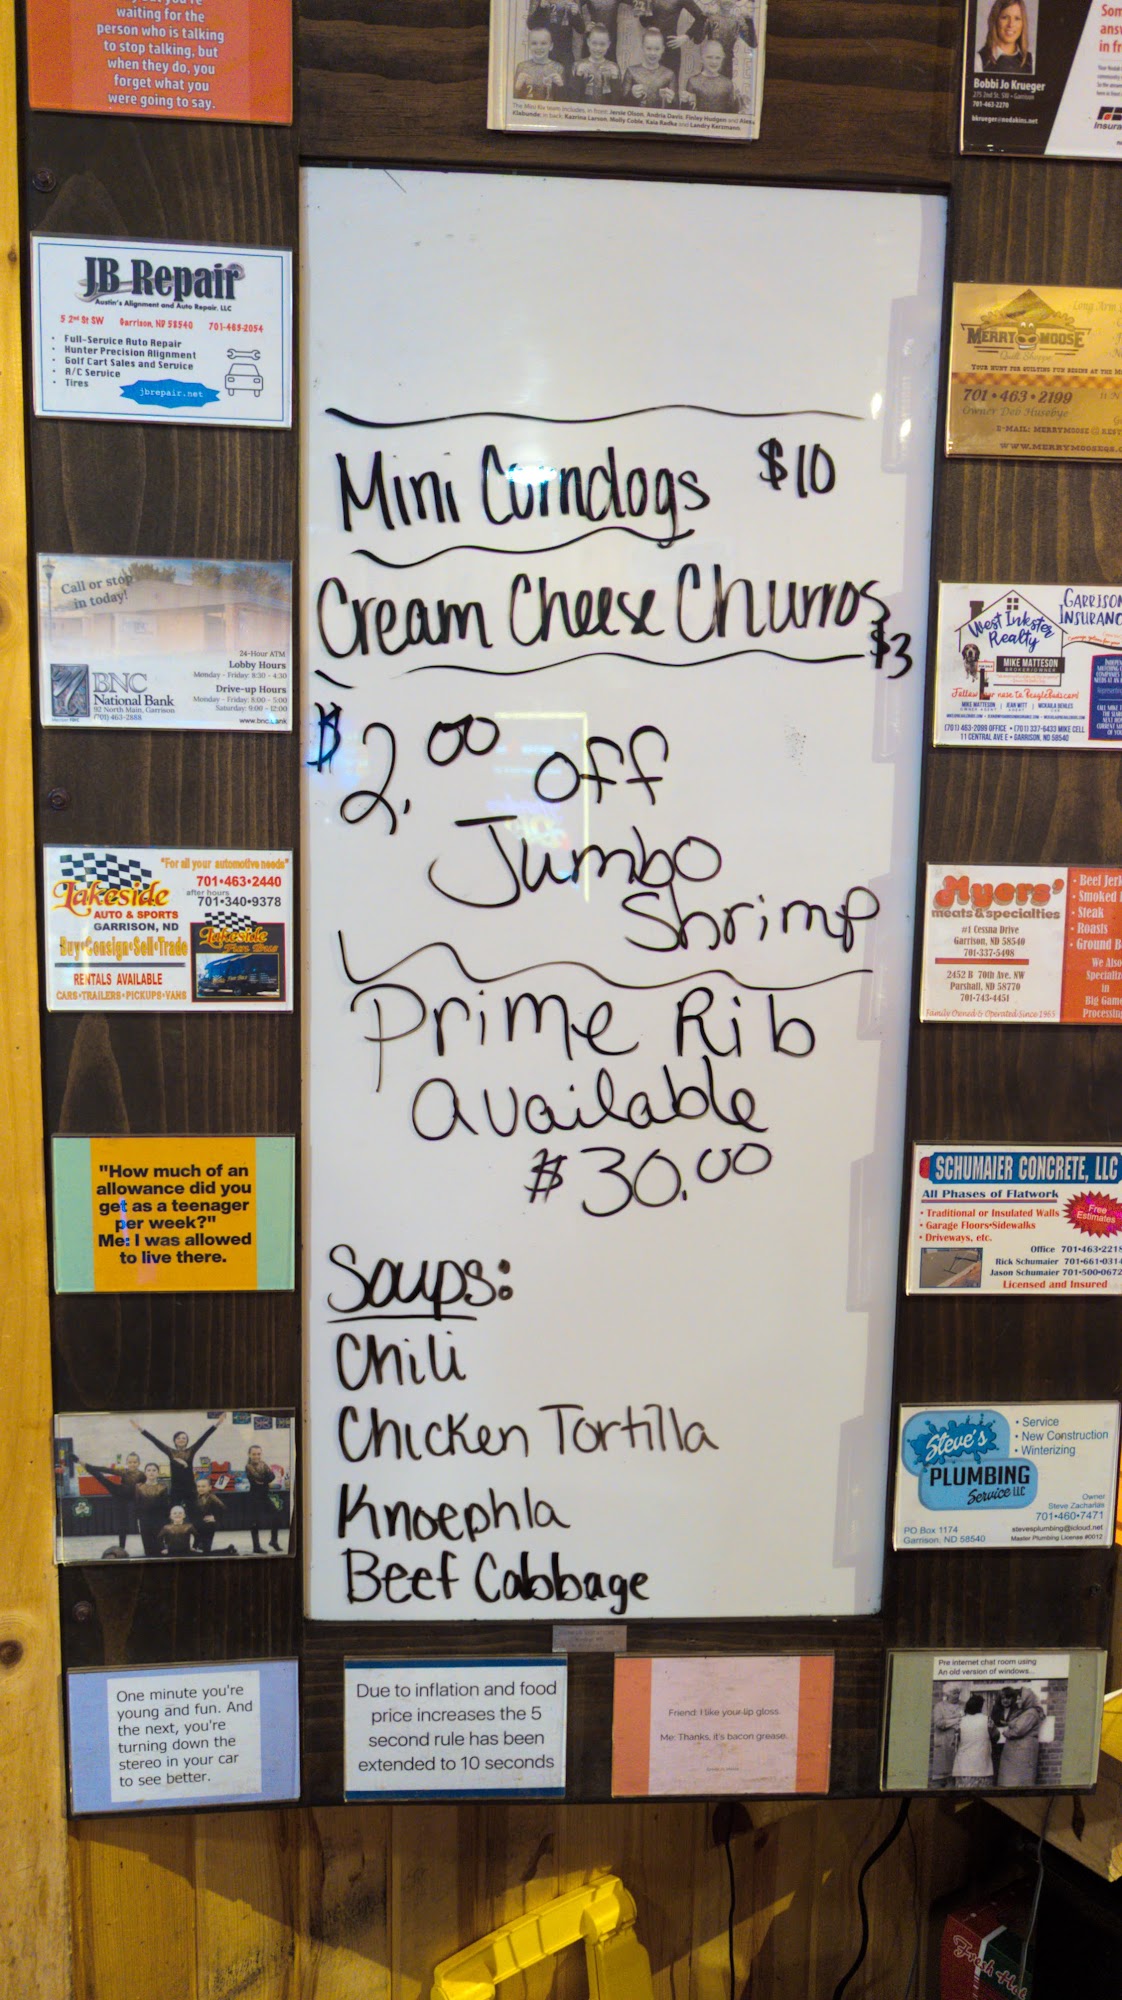 waiting for the
person who is talking
to stop talking, but
when they do, you
forget what you
were going to say.
The Mini Kix team includes, in front: Jersie Olson, Andria Davis, Finley Hudgen and
Klabunde; in back: Katrina Larson, Molly Coble, Kaia Radke and Landry Kerzmann.
Bobbi Jo Krueger
275 2nd St. SW • Garrison
701-463-2270
bkrueger@nodakins.net
in fr
Insura
JB Repair
Austin's Alignment and Auto Repair, LLC
5 2nd St SW Garrison, ND 58540 701-463-2054
• Full-Service Auto Repair
• Hunter Precision Alignment
• Golf Cart Sales and Service
• A/C Service
• Tires
jbrepair.net
MERRY MOOSE
Quilt Shoppe
YOUR HUNT FOR QUILTING FUN BEGINS AT THE M
701•463•2199
Owner Deb Husebye
E-MAIL: MERRYMOOSE@REST
WWW.MERRYMOOSEQS.
Mini Corndogs $10
Cream Cheese Churros
$3
$2.00 off
Jumbo
Shrimp
Prime Rib
available
$30.00
Soups:
Chili
Chicken Tortilla
Knoephla
Beef Cabbage
Call or stop
in today!
24-Hour ATM
Lobby Hours
Monday - Friday: 8:30 - 4:30
Drive-up Hours
Monday - Friday: 8:00 - 5:00
Saturday: 9:00 - 12:00
www.bnc.bank
BNC
National Bank
92 North Main, Garrison
(701) 463-2888
West Inkster
Realty
MIKE MATTESON
BROKER/OWNER
GARRISON
INSURANC
Follow our nose to BeagleRealty.card
MIKE MATTESON | JEAN WITT | MCKAILA BEHLES
(701) 463-2099 OFFICE • (701) 337-6433 MIKE CELL
11 CENTRAL AVE E • GARRISON, ND 58540
"For all your automotive needs"
Lakeside
AUTO & SPORTS
GARRISON, ND
701•463•2440
after hours
701•340•9378
Buy•Consign•Sell•Trade
RENTALS AVAILABLE
CARS•TRAILERS•PICKUPS•VANS
Lakeside
Myers'
meats & specialties
#1 Cessna Drive
Garrison, ND 58540
701-337-5498
2452 B 70th Ave. NW
Parshall, ND 58770
701-743-4451
Family Owned & Operated Since 1965
• Beef Jerk
• Smoked
• Steak
• Roasts
• Ground B
We Also
Specializ
in
Big Game
Processing
"How much of an
allowance did you
get as a teenager
per week?"
Me: I was allowed
to live there.
SCHUMAIER CONCRETE, LLC
All Phases of Flatwork
• Traditional or Insulated Walls
• Garage Floors•Sidewalks
• Driveways, etc.
Free
Estimates
Office 701•463•2218
Rick Schumaier 701•661•0314
Jason Schumaier 701•500•0672
Licensed and Insured
Steve's
PLUMBING
Service LLC
• Service
• New Construction
• Winterizing
Owner
Steve Zacharias
701•460•7471
stevesplumbing@icloud.net
Master Plumbing License #0012
PO Box 1174
Garrison, ND 58540
One minute you're
young and fun. And
the next, you're
turning down the
stereo in your car
to see better.
Due to inflation and food
price increases the 5
second rule has been
extended to 10 seconds
Friend: I like your lip gloss.
Me: Thanks, it's bacon grease.
Pre internet chat room using
An old version of windows...
Fresh Hot